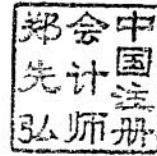 中国注册
会计师
郑先弘